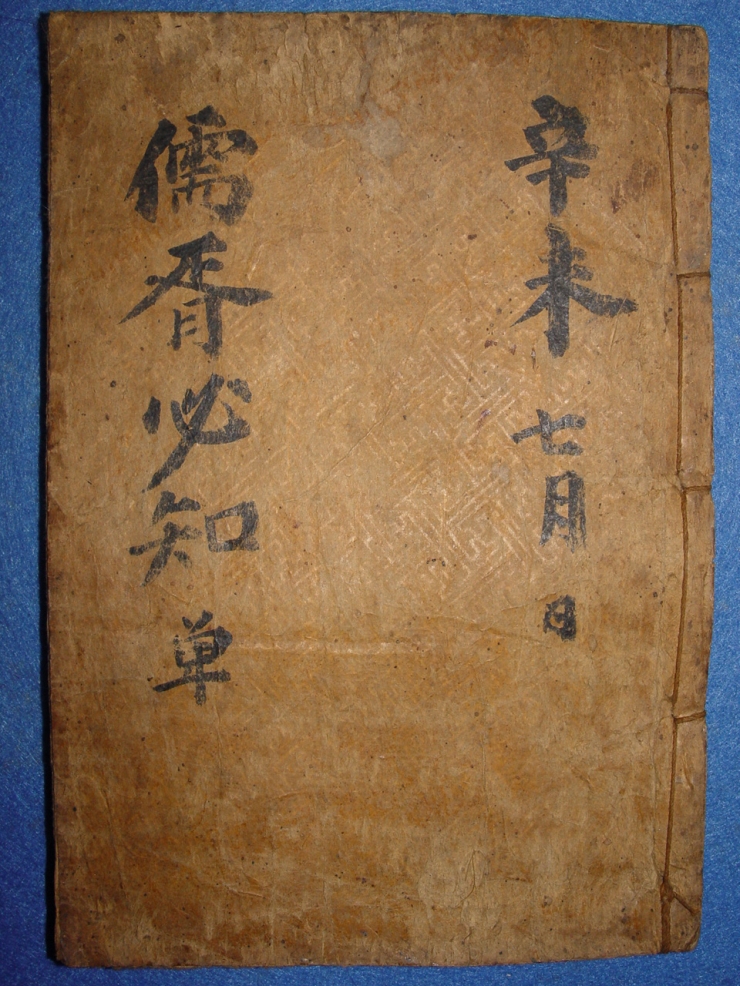 辛未七月日
儒胥必知 单